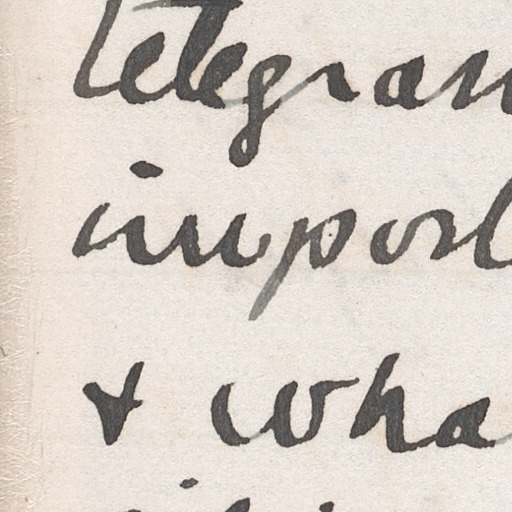 telegram
import
& wha